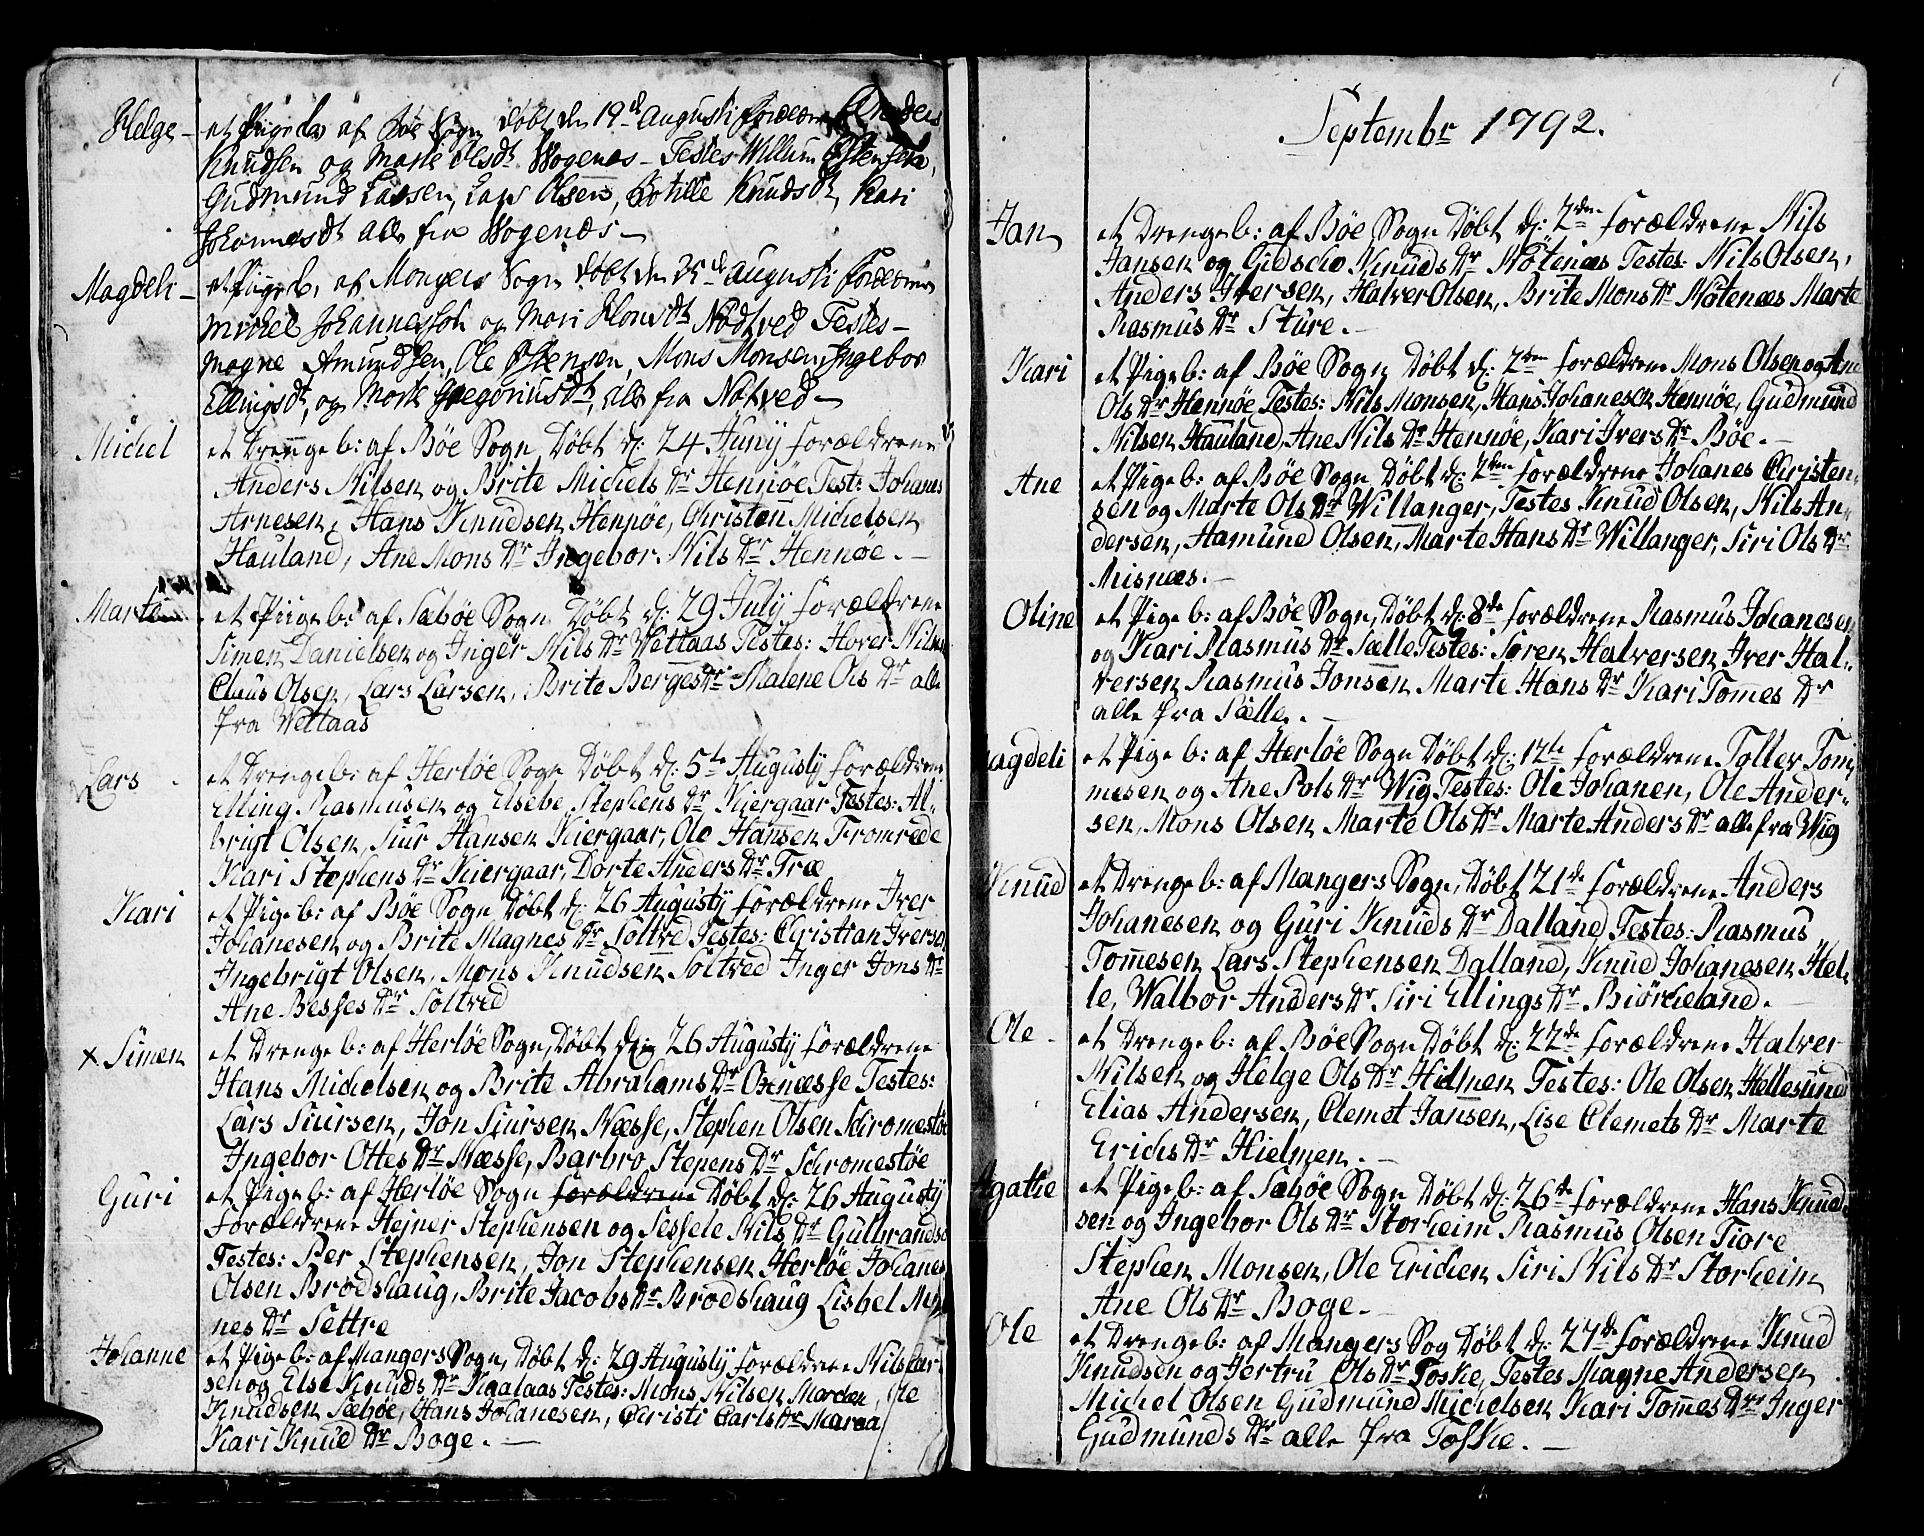 Helge - et Pigeb. af Böe Sogn döbt den 19de Augusti Forældrene Anders
Knudsen og Marte Olsdt Wogenæs - Testes Willum Ostensen,
Gudmund Lassen, Lars Olsen, Botille Knudsdt, Kari
Johannesdt alle fra Wogenæs -
Magdeli - et Pigeb. af Mangers Sogn döbt den 25de Augusti Foræ
Michel Johannessøn og Mari Monsdt Nödtved Testes -
Magne Amundsen, Ole Ostensen, Mons Monsen, Ingebor
Ellingsdt, og Marte Gregoriusdt, alle fra Nötved -
Michel et Drengeb: af Böe Sogn Döbt d: 24 Junij Forældrene
Anders Nilsen og Brite Michels Dr Hennöe Test: Johanes
Arnesen, Hans Knudsen Hennöe, Christen Michelsen
Hauland, Ane Mons Dr Ingebor Nils Dr Hennöe. -
Marte et Piigeb: af Sæböe Sogn Döbt d: 29 Julij Forældrene
Simen Danielsen og Inger Nils Dr Wettaas Testes: Haver Nils
Claus Olsen, Lars Larsen, Brite Berges Dr Malene Ols Dr alle
fra Wettaas
Lars - et Drengeb: af Herlöe Sogn Döbt d: 5te Augusty Forældrene
Elling Rasmusen og Elsebe Stephens Dr Kiergaar Testes: Al-
brigt Olsen, Siur Hansen Kiergaar, Ole Hansen Fromrede
Kari Stephens Dr Kiergaar, Dorte Anders Dr Træ
Kari et Pigeb: af Böe Sogn Döbt d: 26 Augusty Forældrene Iver
Johanesen og Brite Magnes Dr Soltved Testes: Christian Iversen
Ingebrigt Olsen, Mons Knudsen Soltved Inger Jons Dr
Ane Besses Dr Soltved
x Simen et Drengeb: af Herlöe Sogn, Döbt den 26 Augusty Forældrene
Hans Michelsen og Brite Abrahams Dr Oxnæsse Testes:
Lars Siursen, Jon Siursen Næsse, Stephen Olsen Schromestöe
Ingebor Ottes Dr Næsse, Barbro Stepens Dr Schromestöe
Guri et Pigeb: af Herlöe Sogn Forældrene Döbt d: 26 Augusty
Forældrene Heiner Stephensen og Sessele Nils Dr Gulbrands
Testes: Per Stephensen, Jon Stephensen Herlöe Johanes
Olsen Brodshaug, Brite Jacobs Dr Brodshaug Lisbel
nes Dr Settre
Johanne et Pigeb: af Mangers Sogn, Döbt d: 29 Augusty Forældrene Nils Lar-
sen og Else Knuds Dr Kaalaas Testes: Mons Nilsen Marøen, Ole
Knudsen Sæböe, Hans Johanesen, Christi Carls Dr Maraa
Kari Knud Dr Boge. -
Septembr 1792.
Jan et Drengeb: af Böe Sogn Döbt d: 2den Forældrene Nils
Jansen og Gidsche Knuds Dr Nötenæs Testes: Nils Olsen,
Anders Iversen, Halver Olsen, Brite Mons Dr Nötenæs Marte
Rasmus Dr Sture. -
Kari et Pigeb: af Böe Sogn Döbt d: 2den Forældrene Mons Olsen og Ane
Ols Dr Hennöe Testes: Nils Monsen, Hans Johanesen Hennöe, Gudmund
Nilsen Hauland, Ane Nils Dr Hennöe, Kari Ivers Dr Böe. -
Ane et Pigeb: af Böe Sogn Döbt d: 2den Forældrene Johanes Christen-
sen og Marte Ols Dr Willanger, Testes Knud Olsen, Nils An-
dersen, Hamund Olsen, Marte Hans Dr Willanger, Siri Ols Dr
Misnæs. -
Oline et Pigeb: af Böe Sogn, Döbt d: 8de Forældrene Rasmus Johanesen
og Kari Rasmus Dr Sælle Testes: Sören Halversen Iver Hal-
versen Rasmus Jonsen Marte Hans Dr Kari Tomes Dr
alle fra Sælle. -
agdeli et Pigeb: af Herlöe Sogn Döbt d: 12te Forældrene Toller Tom-
mesen og Ane Pols Dr Wig Testes: Ole Johanen, Ole Ander-
sen, Mons Olsen Marte Ols Dr Marte Anders Dr alle fra Wig
Knud et Drengeb: af Mangers Sogn, Döbt 21de Forældrene Anders
Johanesen og Guri Knuds Dr Dalland Testes: Rasmus
Tommesen Lars Stephensen Dalland, Knud Johanesen Hel-
le, Walbor Anders Dr Siri Ellings Dr Biörcheland. -
Ole - et Drengeb: af Böe Sogn Döbt d: 22de Forældrene Halver
Nilsen og Helge Ols Dr Hielmen Testes: Ole Olsen Hellesund
Elias Andersen, Clemet Jansen, Lise Clemets Dr Marte
Erichs Dr Hielmen. -
Agathe et Pigeb: af Sæböe Sogn Döbt d: 26de Forældrene Hans Knud-
sen og Ingebor Ols Dr Storheim Rasmus Olsen Fiore
Stephen Monsen, Ole Erichen Siri Nils Dr Storheim
Ane Ols Dr Boge. -
Ole et Drengeb: af Mangers Sog Döbt d: 27de Forældrene Knud
Knudsen og Jertru Ols Dr Toske, Testes Magne Andersen
Michel Olsen Gudmund Michelsen Kari Tommes Dr Inger
Gudmunds Dr alle fra Toske. -